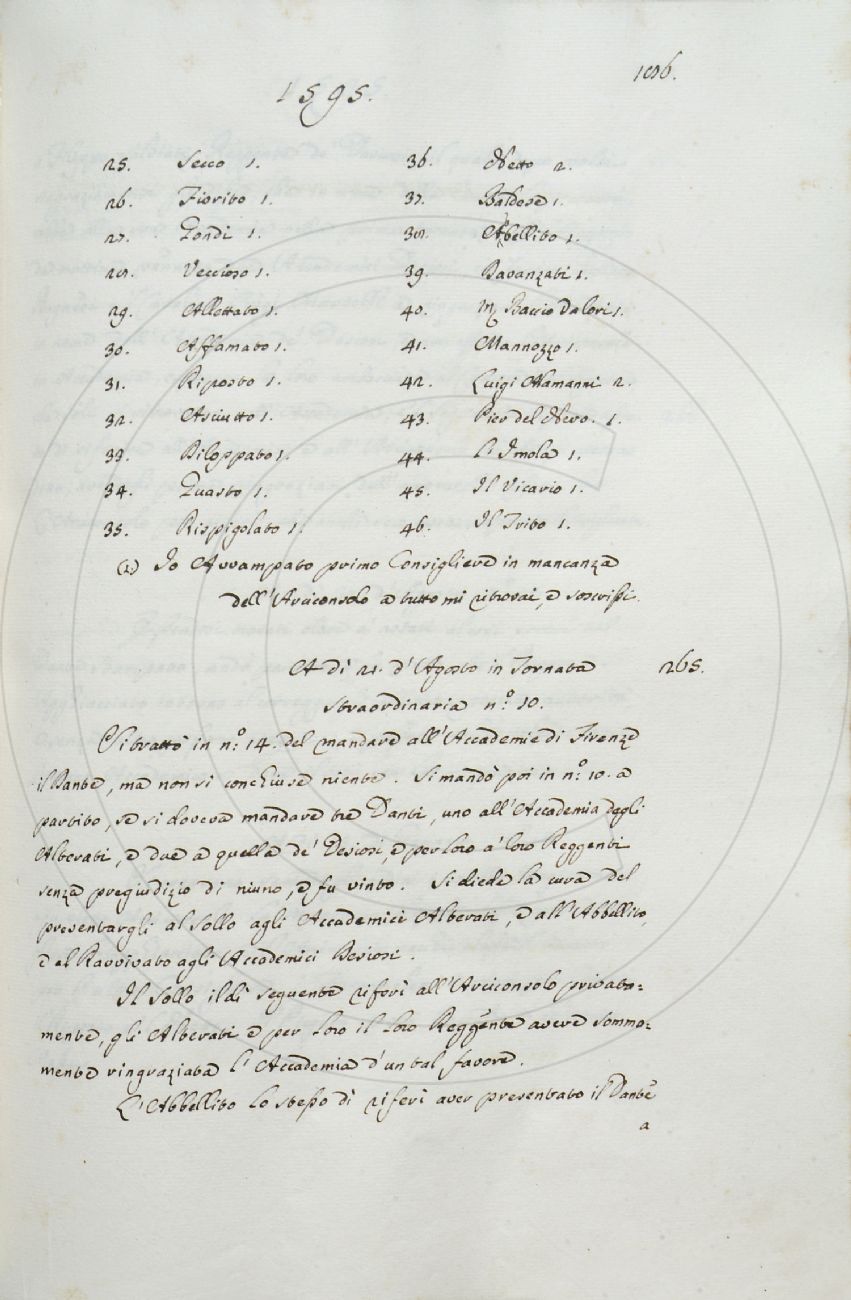 1595.
186.
25. Secco 1.
26. Fiorito 1.
27. Zondi 1.
28. Veccioso 1.
29. Allettato 1.
30. Affamato 1.
31. Riposto 1.
32. Asciutto 1.
33. Riloppato 1.
34. Guasto 1.
35. Rispigolato 1.
36. Netto 2.
37. Baldose 1.
38. Abellito 1.
39. Bavanzati 1.
40. M. Baccio Valori 1.
41. Mannozzo 1.
42. Luigi Alamanni 2.
43. Pier del Nero. 1.
44. L'Imola 1.
45. Il Vicario 1.
46. Il Trito 1.
(1) Io Avvampato primo Consigliere in mancanza
dell'Arciconsolo a tutto mi ritrovai, e soscrissi.
A dì 21. d'Agosto in Tornata 265.
straordinaria n.º 10.
Si trattò in n.º 14. del mandare all'Accademie di Firenze
il Dante, ma non si conchiuse niente. Si mandò poi in n.º 10. a
partito, se si doveva mandare tre Danti, uno all'Accademia degli
Alterati, e due a quella de' Desiosi, e per loro a' loro Reggenti
senza pregiudizio di niuno, e fu vinto. Si diede la cura del
presentargli al Sollo agli Accademici Alterati, e all'Abbellito,
e al Ravvivato agli Accademici Desiosi.
Il Sollo il dì seguente riferì all'Arciconsolo privata=
mente, gli Alterati e per loro il loro Reggente avere somma=
mente ringraziata l'Accademia d'un tal favore.
L'Abbellito lo stesso dì riferì aver presentato il Dante
a